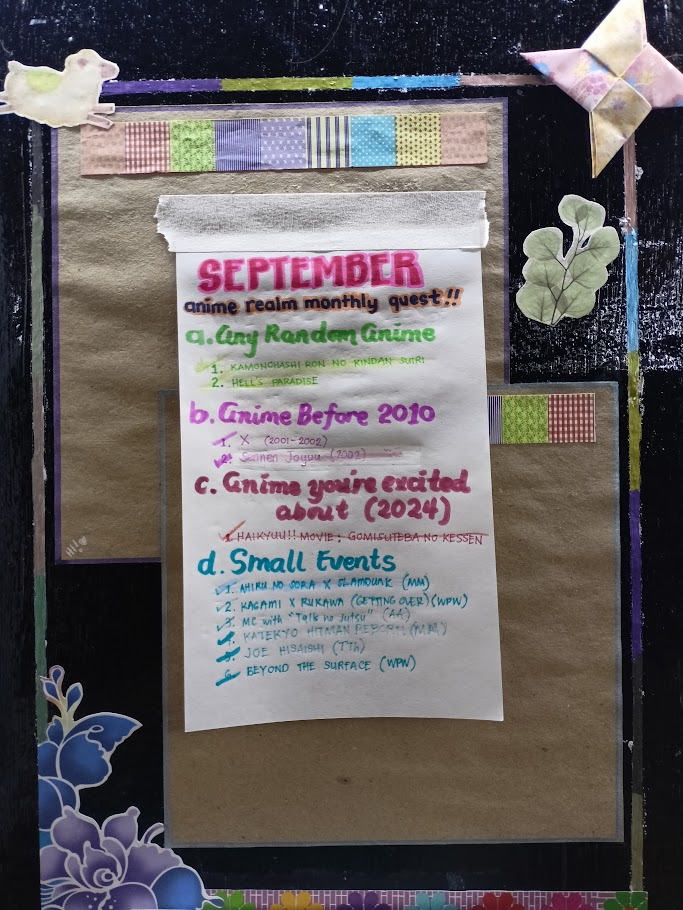 SEPTEMBER
anime realm monthly quest!!
a. Any Random Anime
1. KAMONOHASHI RON NO KINDAN SUIRI
2. HELL'S PARADISE
b. Anime Before 2010
1. X (2001-2002)
2. Sennen Joyuu (2002)
c. Anime you're excited
about (2024)
1. HAIKYUU!! MOVIE: GOMISUTEBA NO KESSEN
d. Small Events
1. AHIRU NO SORA X SLAMDUNK (MM)
2. KAGAMI X RUKAWA (GETTING OVER) (WPW)
3. MC with "Talk no Jutsu" (AA)
4. KATEKYO HITMAN REBORN! (MM)
5. JOE HISAISHI (TTh)
6. BEYOND THE SURFACE (WPW)
Hi!